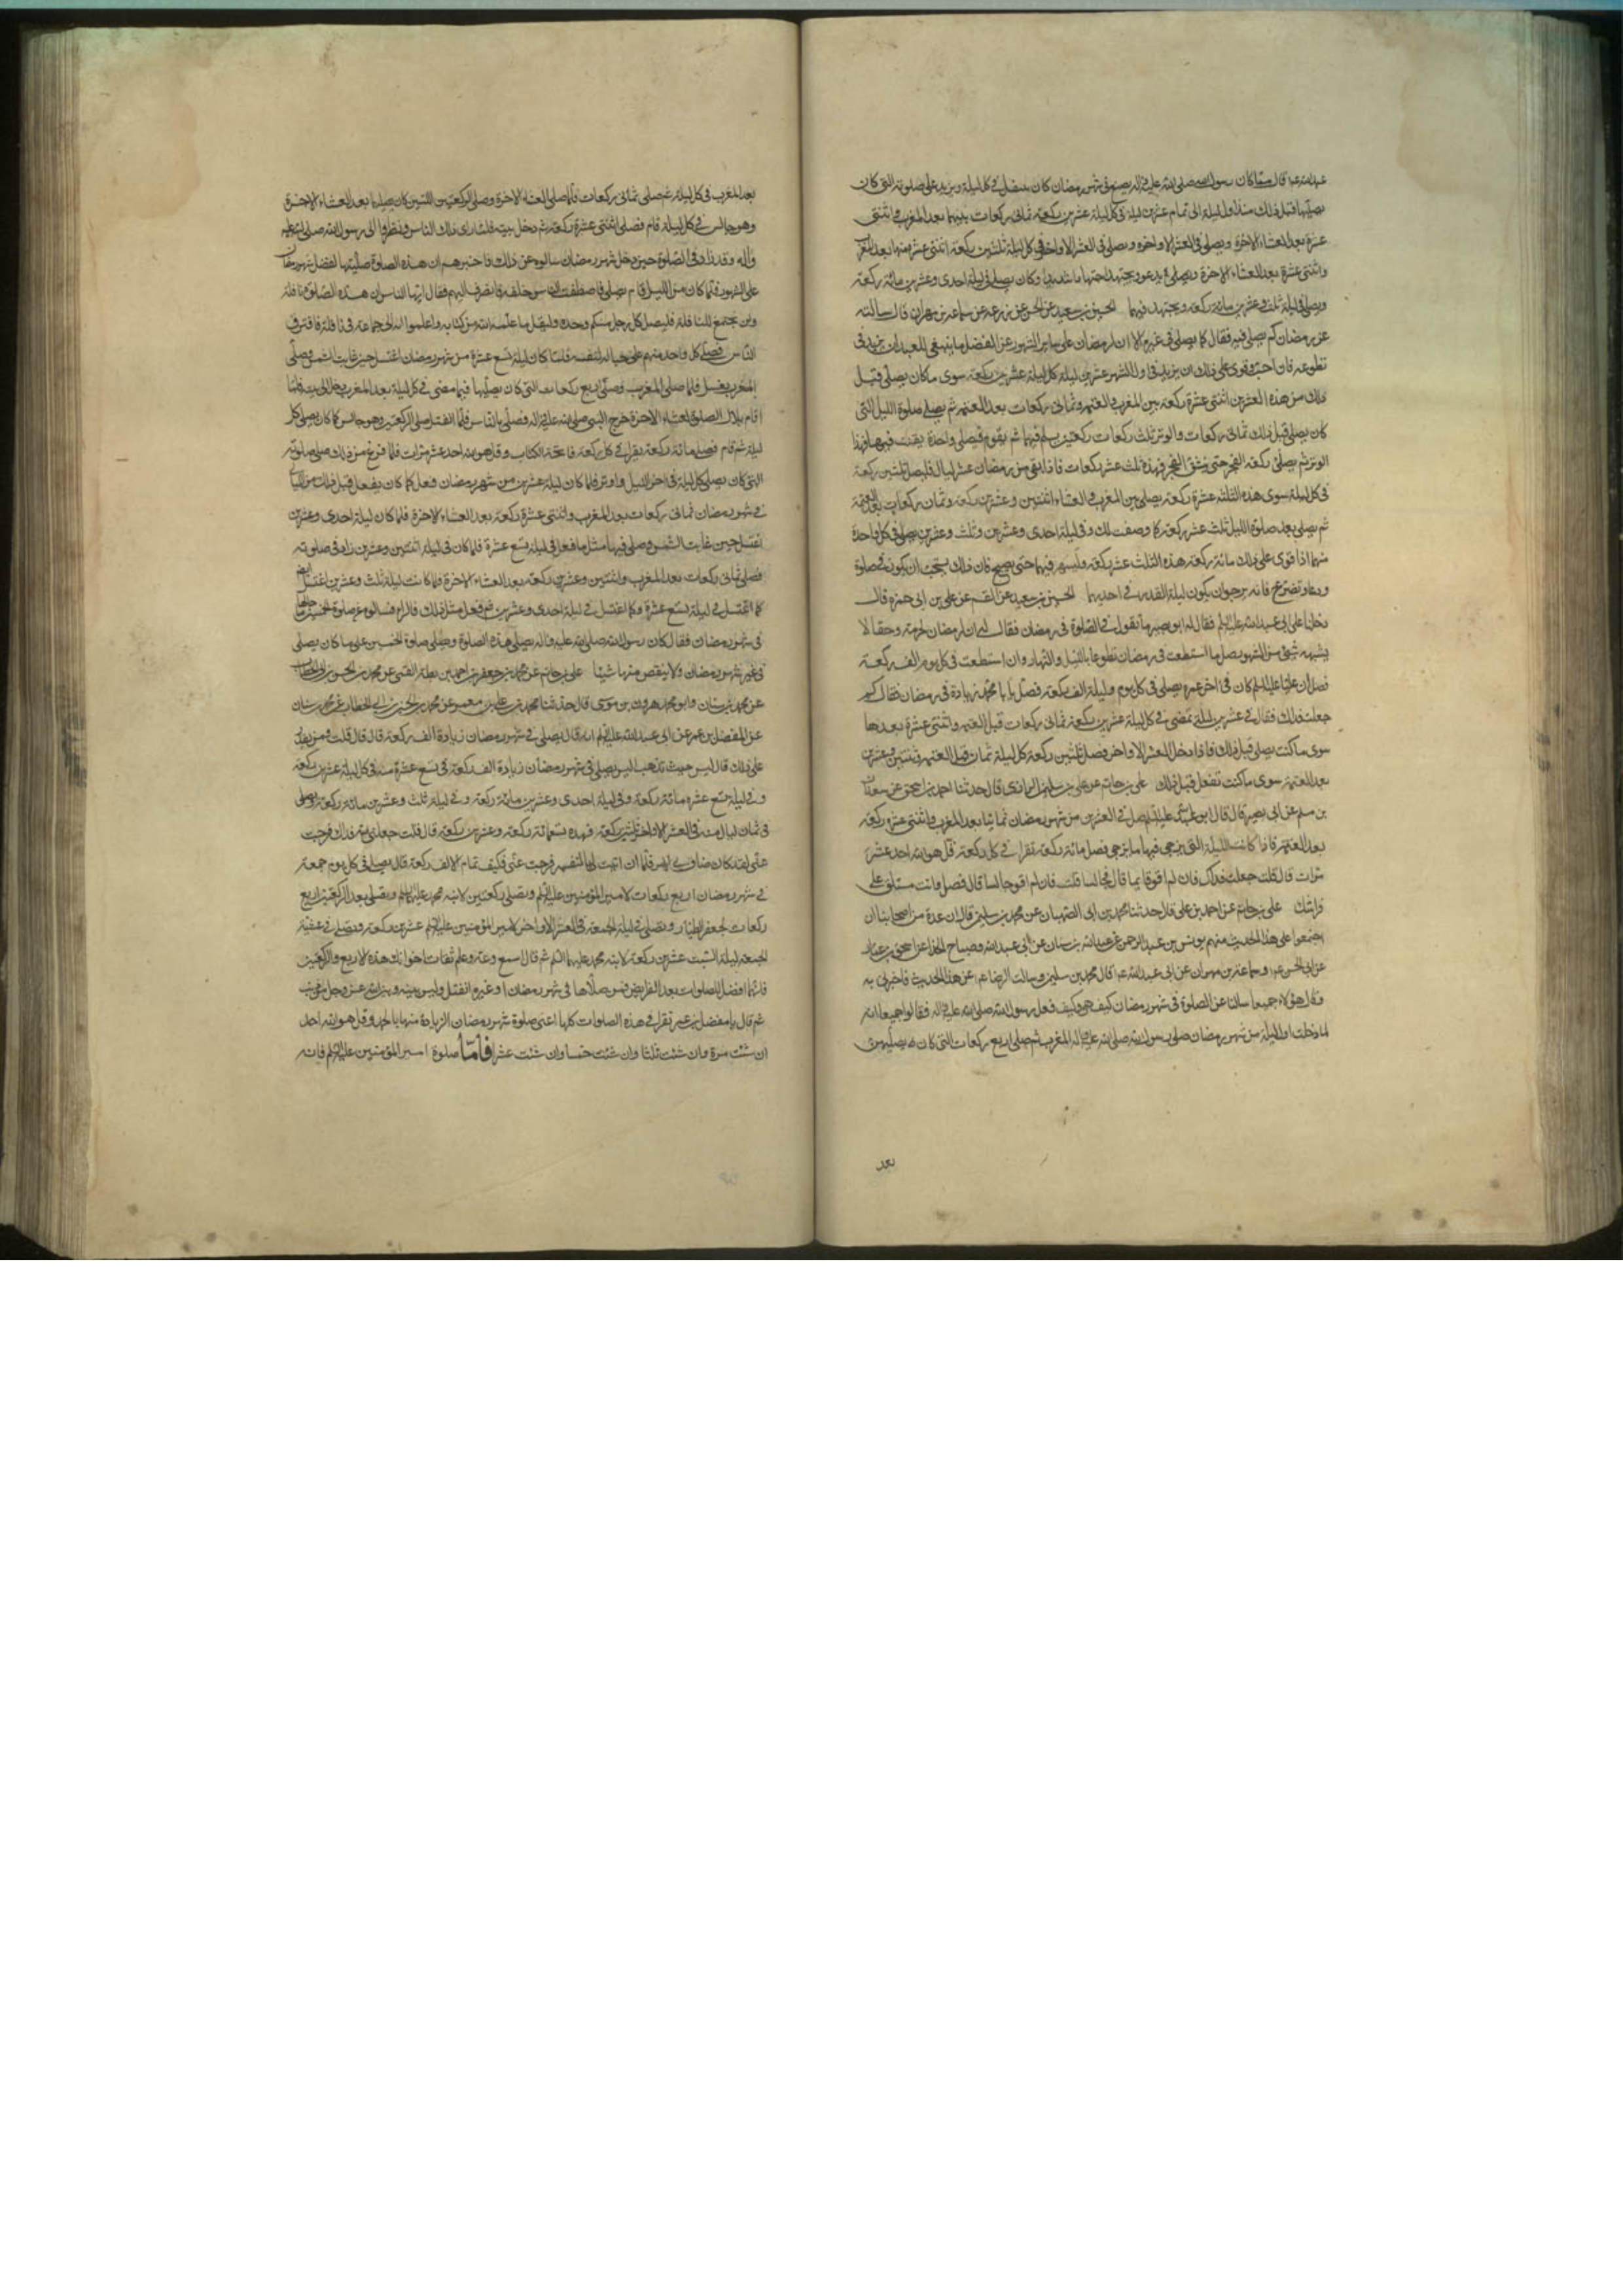 عبد الله ع قال مما كان رسول الله صلى الله عليه واله يصنع في شهر رمضان كان يتنفل في كل ليلة ويزيد على صلوته التي كان
يصليها قبل ذلك منذ اول ليلة الى تمام عشرين ليلة في كل ليلة عشرين ركعة ثماني ركعات منها بعد المغرب واثنتى
عشرة بعد العشاء الاخرة ويصلى في العشر الاواخر في كل ليلة ثلثين ركعة اثنتى عشرة منها بعد المغرب
واثنتى عشرة بعد العشاء الاخرة ويدعو ويجتهد اجتهادا شديدا وكان يصلى في ليلة احدى وعشرين مائة ركعة
ويصلى في ليلة ثلث وعشرين مائة ركعة ويجتهد فيهما الحسين بن سعيد عن الحسن عن زرعة عن سماعة بن مهران قال سالته
عن رمضان كم يصلى فيه فقال كما يصلى في غيره الا ان لرمضان على ساير الشهور من الفضل ما ينبغي للعبد ان يزيد في
تطوعه فان احب وقوى على ذلك ان يزيد في اول الشهر عشرين ليلة كل ليلة عشرين ركعة سوى ما كان يصلى قبل
ذلك من هذه العشرين اثنتى عشرة ركعة بين المغرب والعتمة وثماني ركعات بعد العتمة ثم يصلى صلوة الليل التي
كان يصلى قبل ذلك ثماني ركعات والوتر ثلث ركعات ركعتين يسلم فيهما ثم يقوم فيصلى واحدة يقنت فيها فهذا
الوتر ثم يصلى ركعة الفجر حتى ينشق الفجر فهذه ثلث عشر ركعات فاذا بقى من رمضان عشر ليال فليصل ثلثين ركعة
في كل ليلة سوى هذه الثلثة عشرة ركعة يصلى بين المغرب والعشاء اثنتين وعشرين ركعة وثمان ركعات بعد العتمة
ثم يصلى بعد صلوة الليل ثلث عشر ركعة كما وصفت لك وفي ليلة احدى وعشرين وثلث وعشرين يصلى في كل واحدة
منهما اذا قوى على ذلك مائة ركعة سوى هذه الثلث عشر ركعة وليسهر فيهما حتى يصبح فان ذلك يستحب ان يكون في صلوة
ودعاء وتضرع فانه يرجوان يكون ليلة القدر في احديهما الحسين بن سعيد عن القسم عن علي بن ابي حمزة قال
دخلنا على ابي عبد الله عليه السلام فقال له ابو بصير ما تقول في الصلوة في رمضان فقال له ان لرمضان لحرمة وحقا لا
يشبهه شيء من الشهور صل ما استطعت في رمضان تطوعا بالليل والنهار وان استطعت في كل يوم الف ركعة
فصل ان عليا عليه السلم كان في اخر عمره يصلى في كل يوم وليلة الف ركعة فصل يا با محمد زيادة في رمضان فقال كم
جعلت فداك فقال في عشرين ليلة تمضى في كل ليلة عشرين ركعة ثماني ركعات قبل العتمة واثنتى عشرة بعدها
سوى ما كنت تصلى قبل ذلك فاذا دخل العشر الاواخر فصل ثلثين ركعة كل ليلة ثمان قبل العتمة وثنتين وعشرين
بعد العتمة سوى ما كنت تفعل قبل ذلك على بن حاتم عن علي بن سليمن الرازى قال حدثنا احمد بن اسحق عن سعدان
بن مسلم عن ابي بصير قال قال ابو عبد الله عليه السلم صل في العشرين من شهر رمضان ثمانيا بعد المغرب واثنتى عشرة ركعة
بعد العتمة فاذا كانت الليلة التي يرجى فيها ما يرجى فصل مائة ركعة تقرا في كل ركعة قل هو الله احد عشر
مرات قال قلت جعلت فداك فان لم اقو قايما قال فجالسا قلت فان لم اقو جالسا قال فصل وانت مستلق على
فراشك على بن حاتم عن احمد بن علي قال حدثنا محمد بن ابي الصهبان عن محمد بن سليمن قال ان عدة من اصحابنا
اجتمعوا على هذا الحديث منهم يونس بن عبد الرحمن عن عبد الله بن سنان عن ابي عبد الله وصباح الحذاء عن اسحق بن عمار
عن ابي الحسن ع وسماعة بن مهران عن ابي عبد الله ع قال محمد بن سليمن وسالت الرضا ع عن هذا الحديث فاخبرني به
وقال هؤلاء جميعا سالنا عن الصلوة في شهر رمضان كيف هي وكيف فعل رسول الله صلى الله عليه واله فقالوا جميعا انه
لما دخلت اول ليلة من شهر رمضان صلى رسول الله صلى الله عليه واله المغرب ثم صلى اربع ركعات التي كان يصليهن
بعد
بعد المغرب في كل ليلة ثم صلى ثماني ركعات فلما صلى العشاء الاخرة وصلى الركعتين اللتين كان يصليهما بعد العشاء الاخرة
وهو جالس في كل ليلة قام فصلى اثنتى عشرة ركعة ثم دخل بيته فلما راى ذلك الناس ونظروا الى رسول الله صلى الله عليه
واله وقد زاد في الصلوة حين دخل شهر رمضان سالوه عن ذلك فاخبرهم ان هذه الصلوة صليتها لفضل شهر رمضان
على الشهور فلما كان من الليل قام يصلى فاصطف الناس خلفه فانصرف اليهم فقال ايها الناس ان هذه الصلوة نافلة
ولن يجتمع للنافلة فليصل كل رجل منكم وحده وليقل ما علمه الله من كتابه واعلموا انه لا جماعة في نافلة فافترق
الناس فصلى كل واحد منهم على حياله لنفسه فلما كان ليلة تسع عشرة من شهر رمضان اغتسل حين غابت الشمس وصلى
المغرب بغسل فلما صلى المغرب وصلى اربع ركعات التي كان يصليها فيما مضى في كل ليلة بعد المغرب دخل الى بيته فلما
اقام بلال الصلوة لعشاء الاخرة خرج النبي صلى الله عليه واله فصلى بالناس فلما انفتل صلى الركعتين وهو جالس كما كان يصلى كل
ليلة ثم قام فصلى مائة ركعة يقرا في كل ركعة فاتحة الكتاب وقل هو الله احد عشر مرات فلما فرغ من ذلك صلى صلوته
التي كان يصلى كل ليلة في اخر الليل واوتر فلما كان ليلة عشرين من شهر رمضان فعل كما كان يفعل قبل ذلك من الليالى
في شهر رمضان ثماني ركعات بعد المغرب واثنتى عشرة ركعة بعد العشاء الاخرة فلما كان ليلة احدى وعشرين
اغتسل حين غابت الشمس وصلى فيها مثل ما فعل في ليلة تسع عشرة فلما كان في ليلة اثنتين وعشرين زاد في صلوته
فصلى ثماني ركعات بعد المغرب واثنتين وعشرين ركعة بعد العشاء الاخرة فلما كانت ليلة ثلث وعشرين اغتسل ايضا
كما اغتسل في ليلة تسع عشرة وكما اغتسل في ليلة احدى وعشرين ثم فعل مثل ذلك قال فسالوه عن صلوة الخمسين ما حالها
في شهر رمضان فقال كان رسول الله صلى الله عليه واله يصلى هذه الصلوة ويصلى صلوة الخمسين على ما كان يصلى
في غير شهر رمضان ولا ينقص منها شيئا على بن حاتم عن محمد بن جعفر بن احمد بن بطة القمى عن محمد بن الحسين بن ابي الخطاب
عن محمد بن سنان وابو محمد هرون بن موسى قال حدثنا محمد بن علي بن معمر عن محمد بن الحسين بن ابي الخطاب عن محمد بن سنان
عن المفضل بن عمر عن ابي عبد الله عليه السلم انه قال يصلى في شهر رمضان زيادة الف ركعة قال قلت ومن يقدر
على ذلك قال ليس حيث تذهب اليس يصلى في شهر رمضان زيادة الف ركعة في تسع عشرة منه في كل ليلة عشرين ركعة
وفي ليلة تسع عشرة مائة ركعة وفي ليلة احدى وعشرين مائة ركعة وفي ليلة ثلث وعشرين مائة ركعة ويصلى
في ثمان ليال منه في العشر الاواخر ثلثين ركعة فهذه تسعمائة ركعة وعشرين ركعة قال قلت جعلني الله فداك فرجت
عنى لقد كان ضاق بي الامر فلما ان اتيت لى بالتفسير فرجت عنى فكيف تمام الالف ركعة قال يصلى في كل يوم جمعة
في شهر رمضان اربع ركعات لامير المؤمنين عليه السلم ويصلى ركعتين لابنة محمد عليهما السلم ويصلى بعد الركعتين اربع
ركعات لجعفر الطيار ويصلى في ليلة الجمعة في العشر الاواخر لامير المؤمنين عليه السلم عشرين ركعة ويصلى في عشية
الجمعة ليلة السبت عشرين ركعة لابنة محمد عليهما السلم ثم قال اسمع وعه وعلم ثقات اخوانك هذه الاربع والركعتين
فانهما افضل الصلوات بعد الفرايض فمن صلاها في شهر رمضان او غيره انفتل وليس بينه وبين الله عز وجل من ذنب
ثم قال يا مفضل بن عمر تقرا في هذه الصلوات كلها اعنى صلوة شهر رمضان الزيادة منها بالحمد وقل هو الله احد
ان شئت مرة وان شئت ثلثا وان شئت خمسا وان شئت عشرا فاما صلوة امير المؤمنين عليه السلم فانه